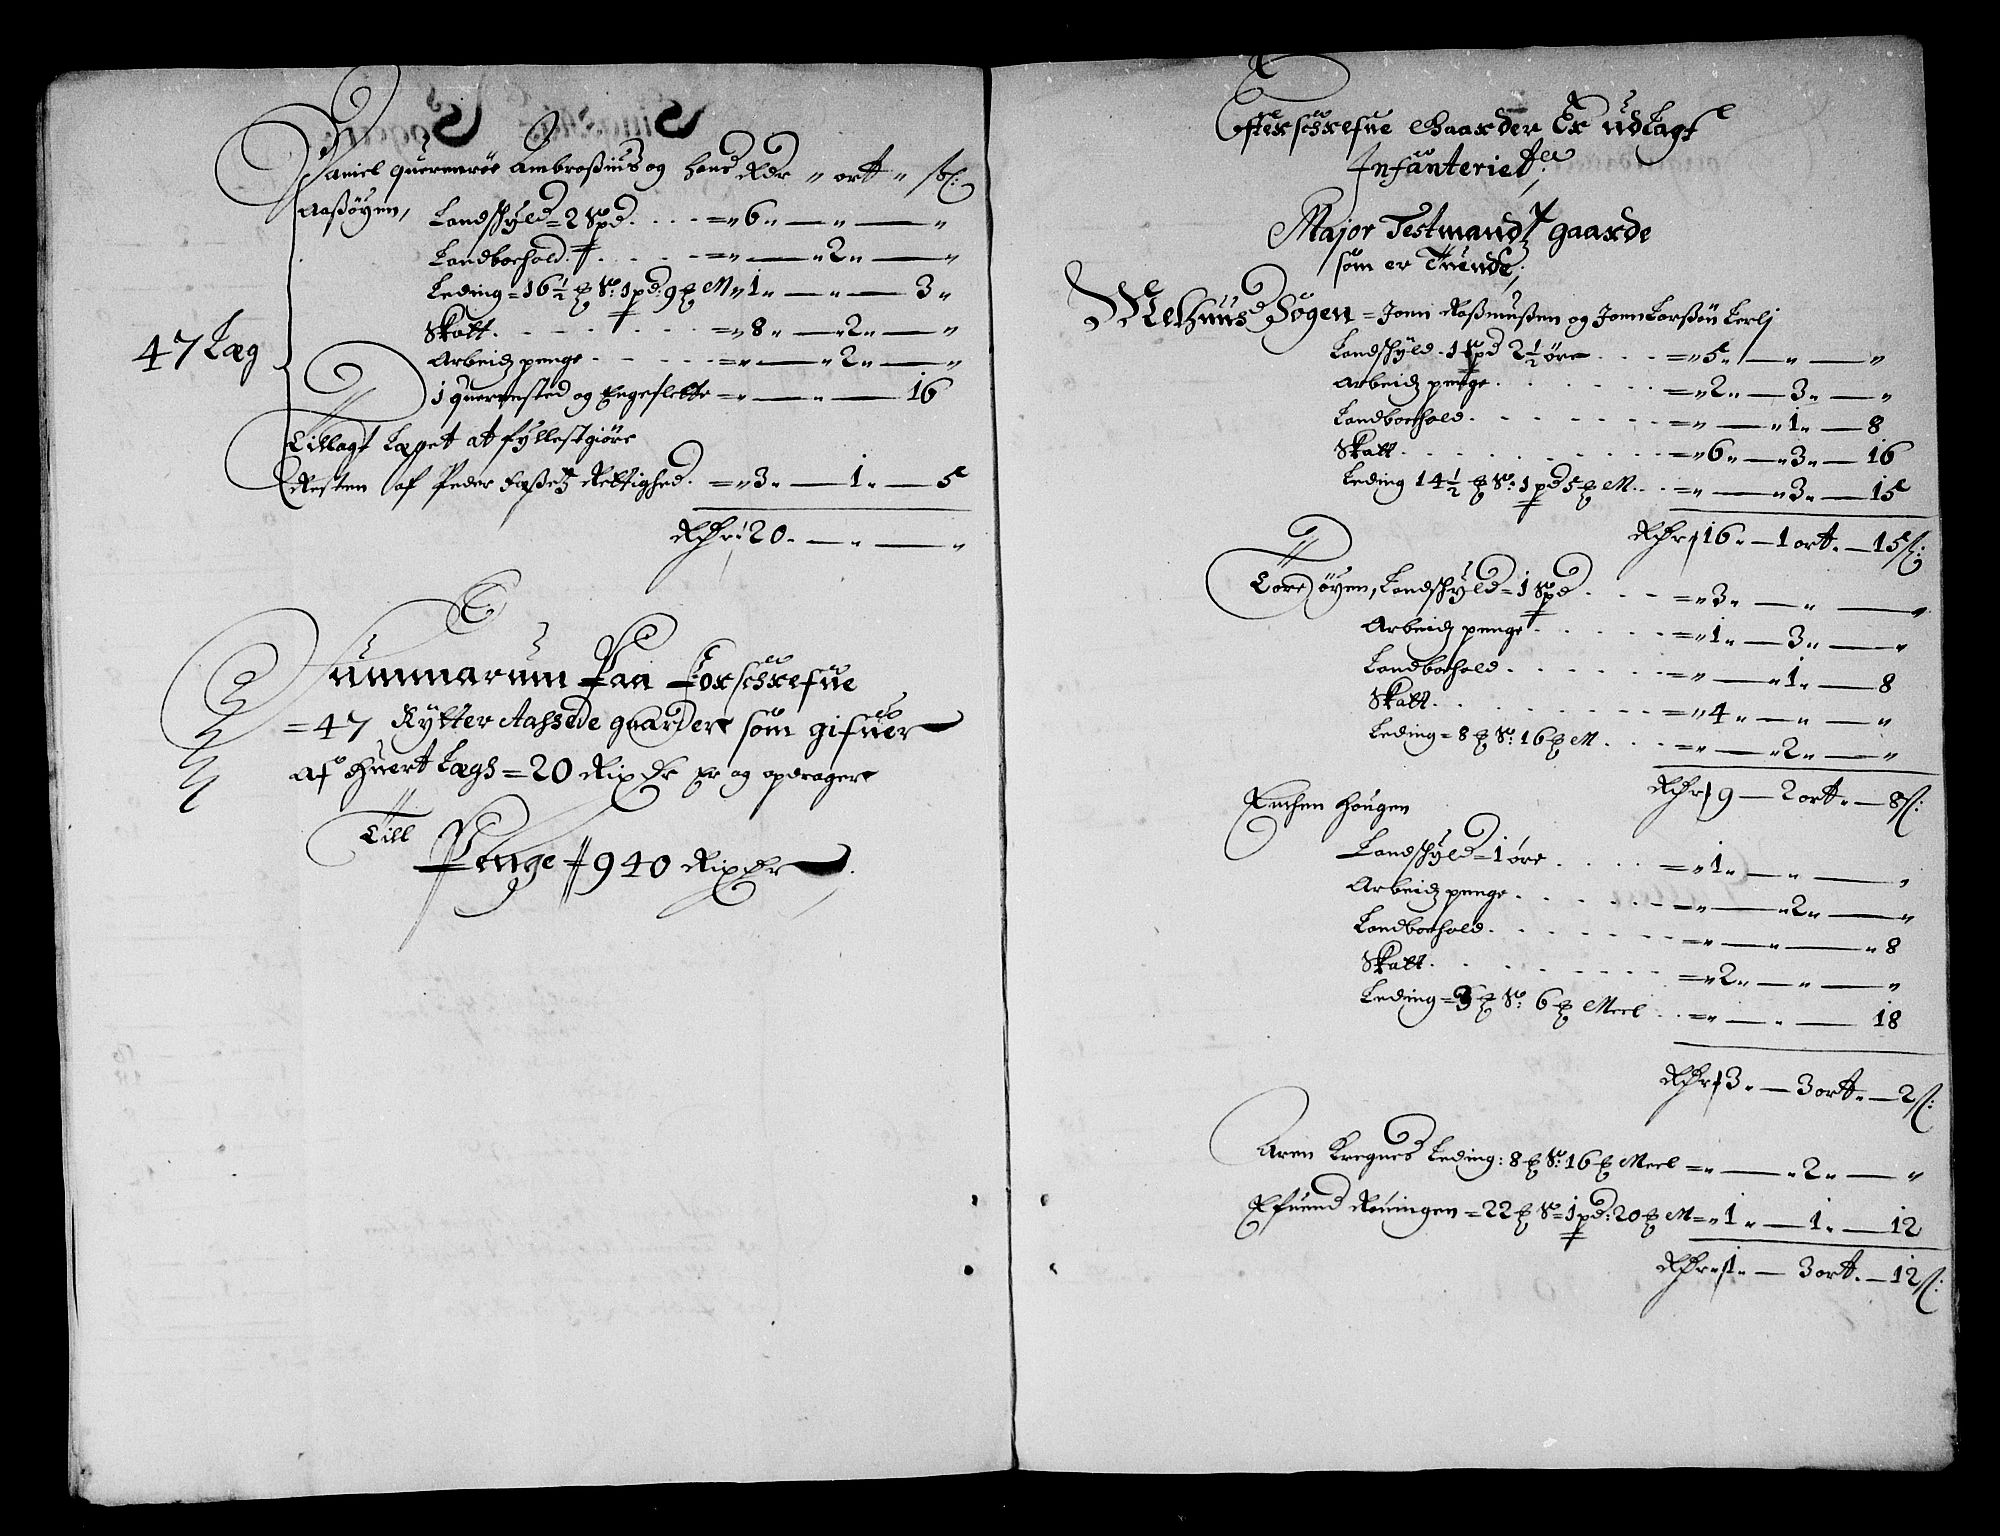 Daniel quernerøe Ambroßius og hans Rdr " ort " ſſ:
Aaßøyen, Landſkyld = 2 Spd. = " 6 " — " — "
Landboehold. = " — " 2 " — "
Leding = 16 1/2 ℔ S: 1 pd: 9 ℔ M " 1 " — " — 3 "
Skatt. = " 8 " — 2 " — "
47 Læg
Arbeidz penge = " — " 2 " — "
1 quernested og Engeslette = " — " — 16
Tillagt Læget at fyllestgiøre
Resten af Peder Rettighed. = " 3 " — 1 " — 5
Rdr: 20 " — " — "
Summarum Paa Forschrefue
= 47 Rytter Aassede gaarder som gifuer
af huert Lægh = 20 Rixdr er og opdrager
Till
Penge 940 Rixdr
Efterschrefue Gaarder Er udlagt
Infanteriet.
Major Testmandz gaarde
som er Tuende,
Melhuus Sogen = Joen Raßmußen og Joen Larßøn Lerlj
Landſkyld. 1 Spd 2 1/2 øre = " 5 " — " — "
Arbeidz penge. = " 2 " — 3 " — "
Landboehold. = " — " 1 " — 8
Skatt. = " 6 " — " 3 " — 16
Leding 14 1/2 ℔ S: 1 pd 5 ℔ M. = " — " 3 " — 15
Rdr 16 " — 1 ort " — 15 ſſ:
Tore øyen, Landſkyld = 1 Spd = " 3 " — " — "
Arbeidz penge = " 1 " — 3 " — "
Landboehold = " — " 1 " — 8
Skatt. = " 4 " — " — "
Leding = 8 ℔ S: 16 ℔ M. = " — " 2 " — "
Rdr 9 — 2 ort " — 8 ſſ:
Enchen Hougen
Landſkyld = 1 øre = " 1 " — " — "
Arbeidz penge. = " — " 2 " — "
Landboehold. = " — " — " 8
Skatt. = " 2 " — " — "
Leding = 3 ℔ S: 6 ℔ Meel = " — " — 18
Rdr 3 " — 3 ort " — 2 ſſ:
Aren Kregnes Leding: 8 ℔ S: 16 ℔ Meel = " — " 2 " — "
Efuend Røningen = 22 ℔ S = 1 pd: 20 ℔ M = " 1 " — 1 " — 12
Rdr 1 " — 3 ort " — 12 ſſ: